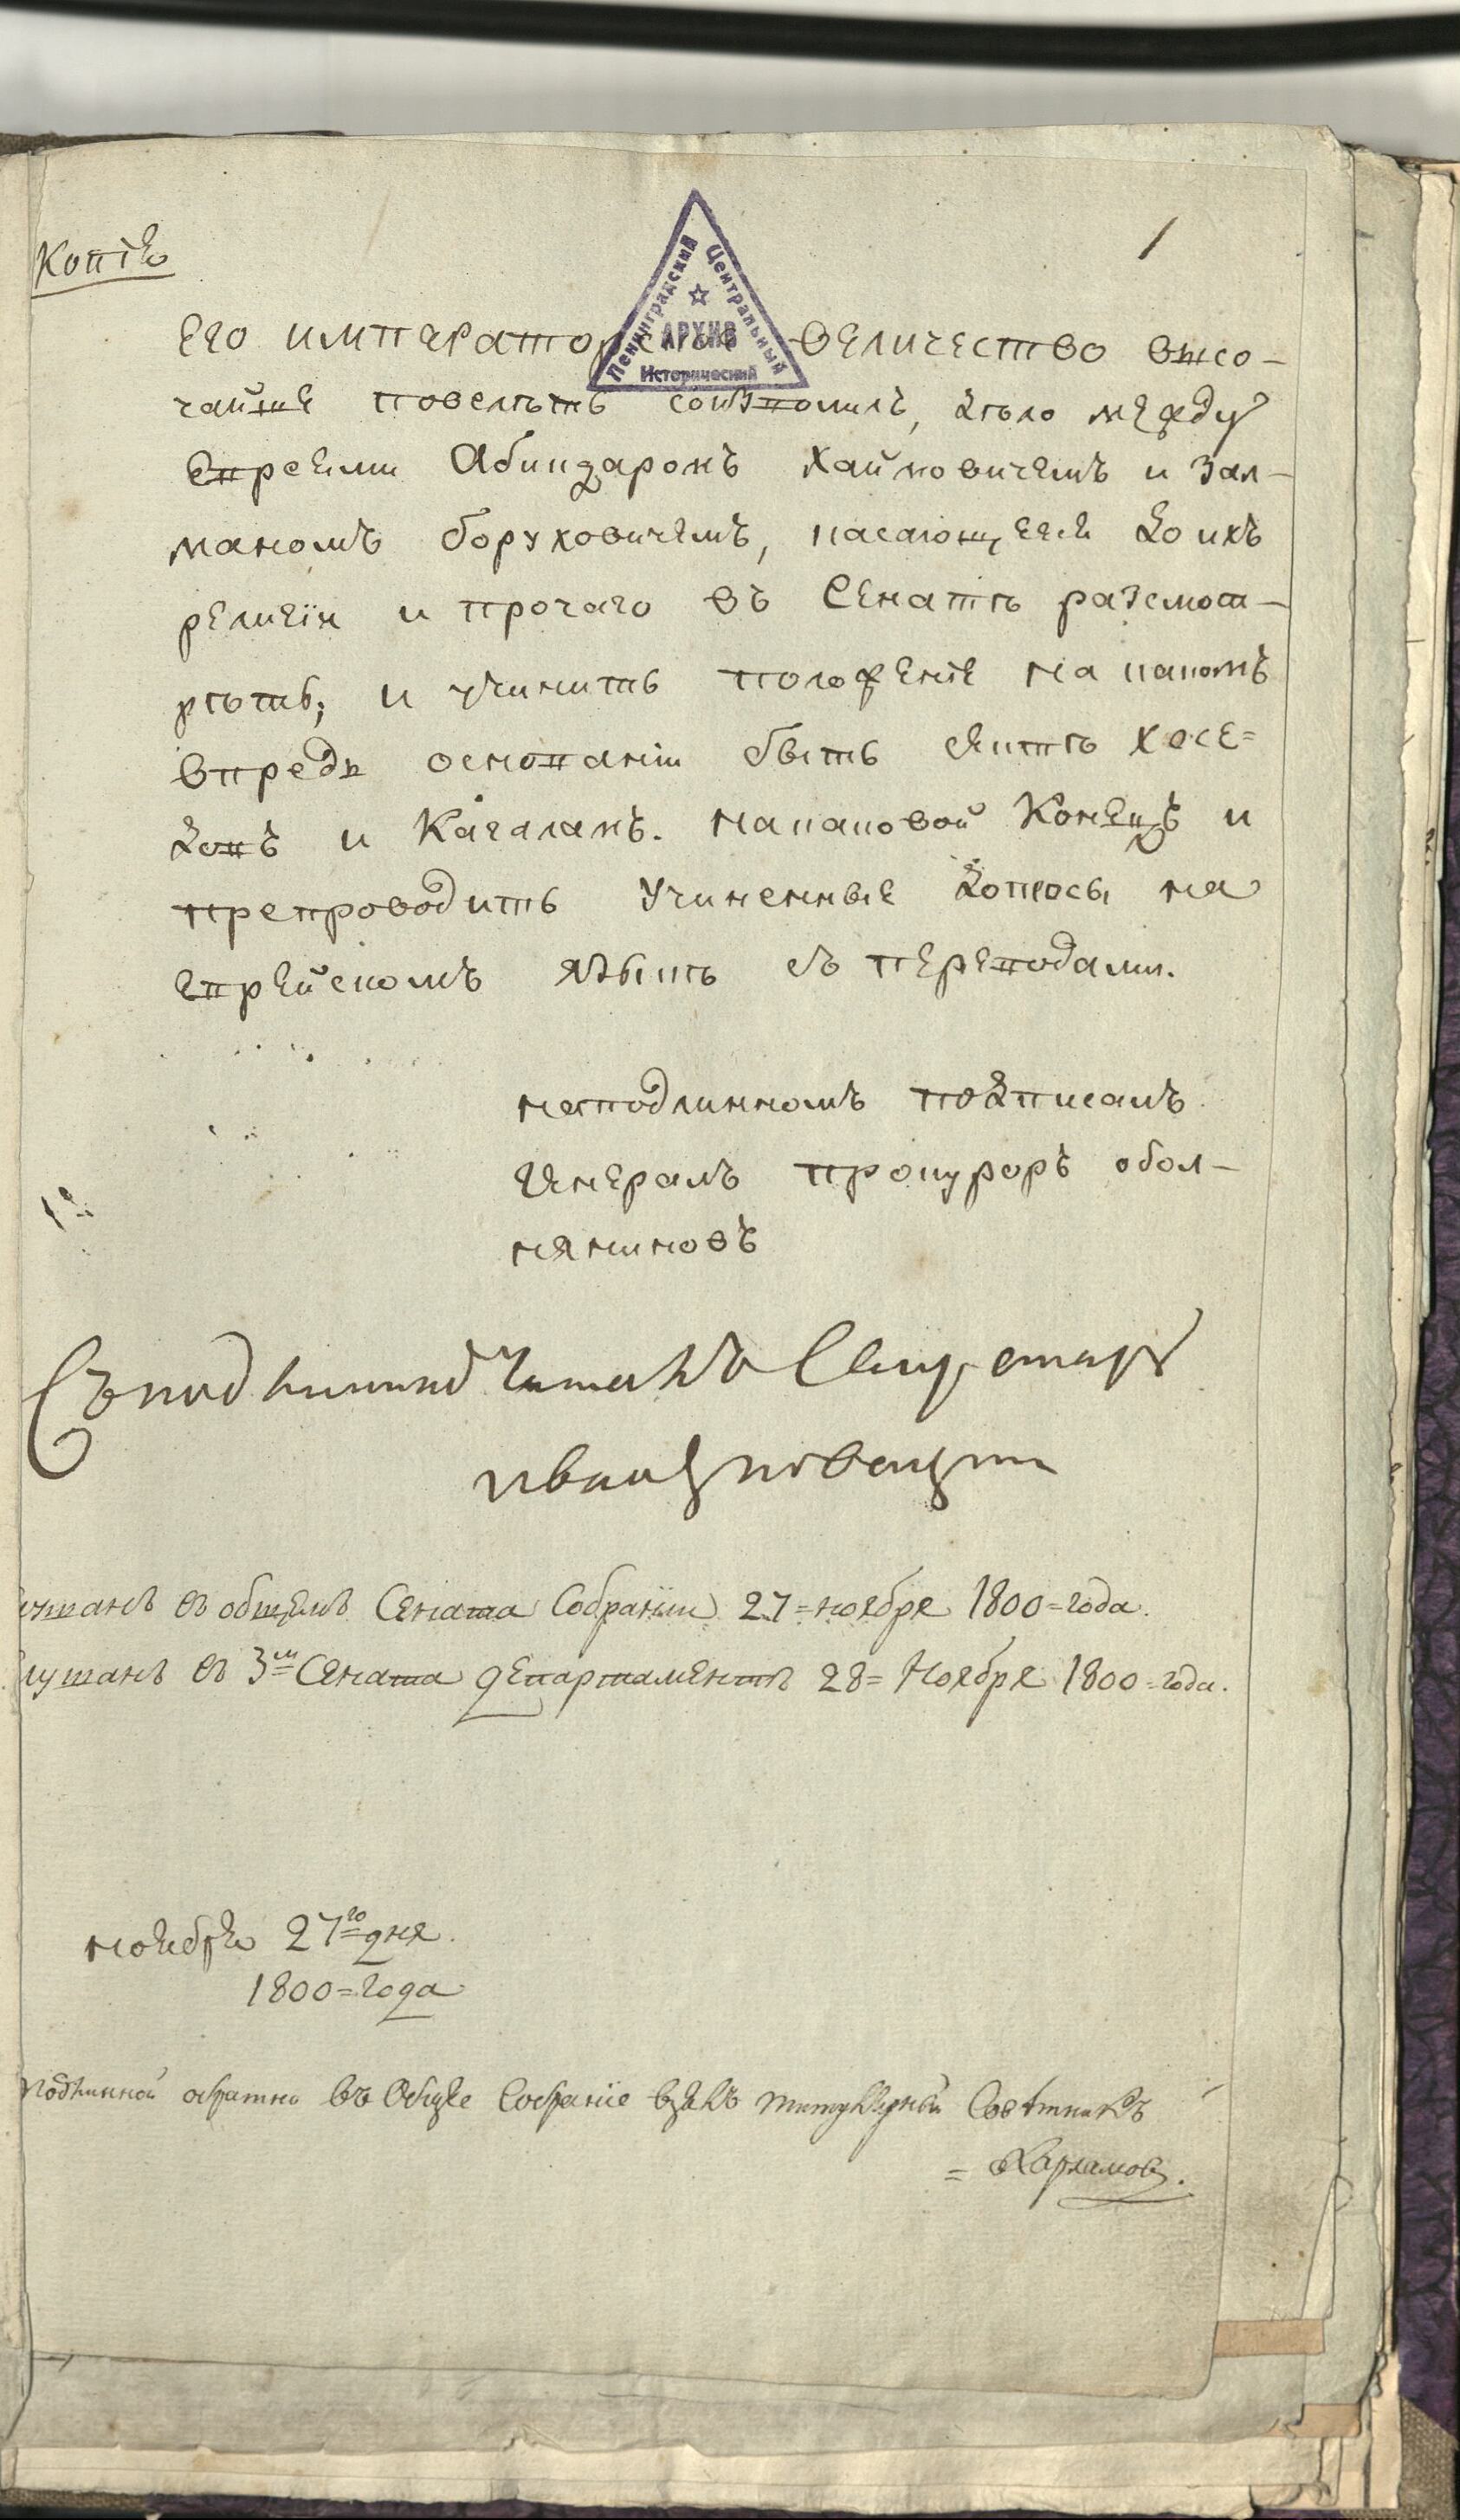 Копія
1
Ленинградский Центральный
АРХИВ
Исторический
Его императорское величество высо-
чайше повелеть соизволилъ, дѣло между
Евреями Абигдаромъ Хаймовичемъ и Зал-
маномъ Боруховичемъ, касающееся до ихъ
религіи и прочаго въ Сенатѣ разсмот-
рѣть; и учинить положеніе на какомъ
впредь основаніи быть сектѣ хасе-
довъ и Кагаламъ. на каковой Конецъ и
препроводить учиненные допросы на
еврейскомъ языкѣ съ переводами.
на подлинномъ подписалъ
Генералъ прокуроръ обол-
няниновъ
Съ подлиннымъ Читалъ Секретарь
слушанъ въ общемъ Сената Собраніи 27=ноября 1800=года.
слушанъ въ 3м Сената департаментѣ 28=Ноября 1800=года.
ноября 27го дня.
1800=года
Подлинной обратно въ Общее Собраніе взялъ титулярный Советникъ
= Харламовъ.